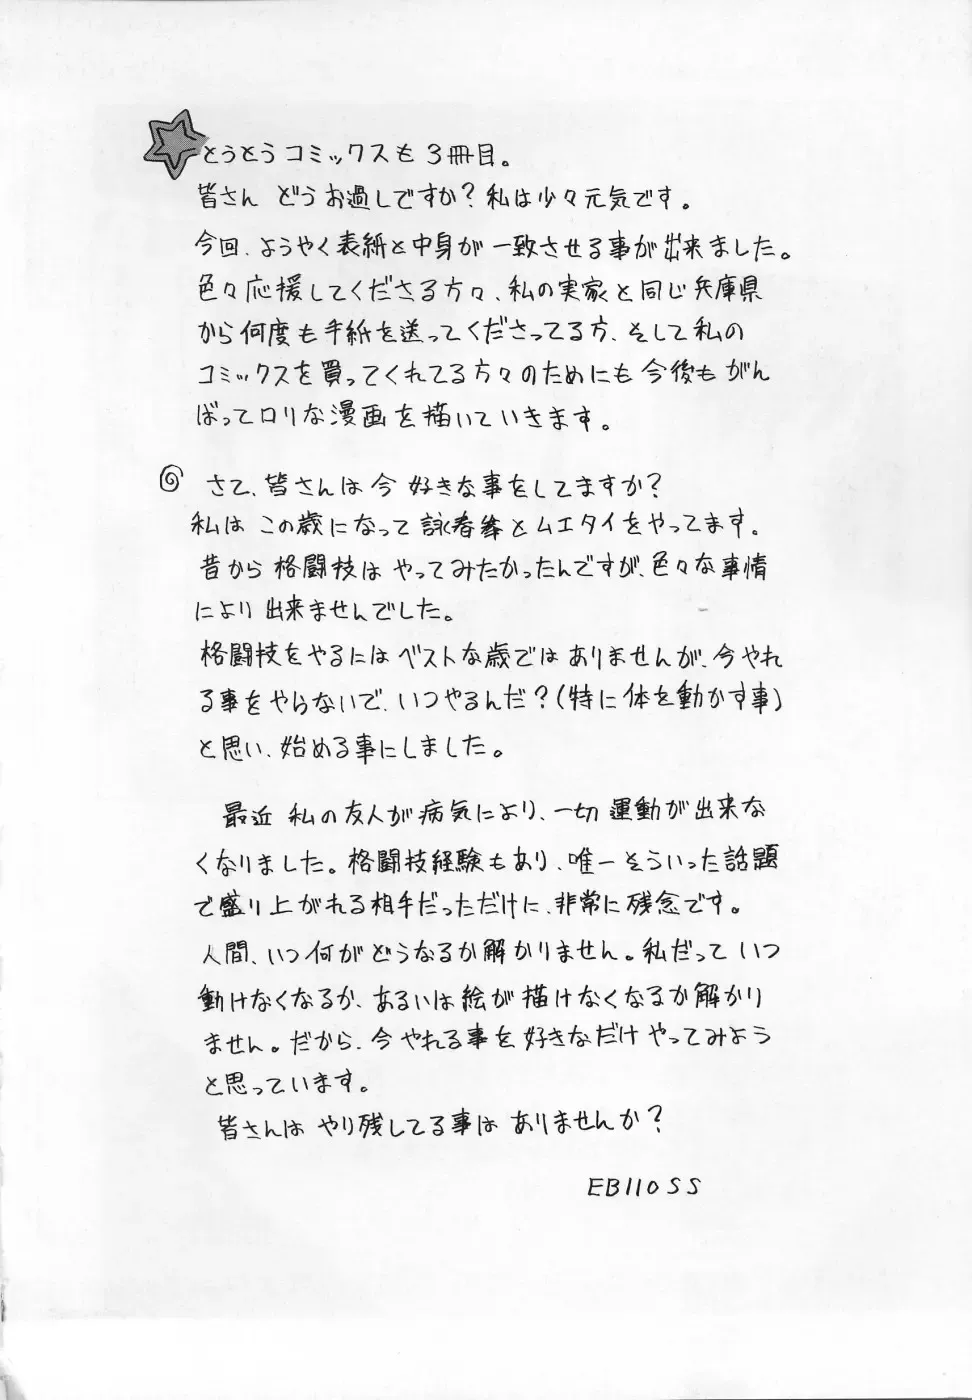 とうとうコミックスも3冊目。
皆さん どうお過しですか?私は少々元気です。
今回、ようやく表紙と中身が一致させる事が出来ました。
色々応援してくださる方々、私の実家と同じ兵庫県
から何度も手紙を送ってくださってる方、そして私の
コミックスを買ってくれてる方々のためにも今後もがん
ばってロリな漫画を描いていきます。
さて、皆さんは今 好きな事をしてますか?
私は この歳になって詠春拳とムエタイをやってます。
昔から格闘技は やってみたかったんですが、色々な事情
により出来ませんでした。
格闘技をやるにはベストな歳ではありませんが、今やれ
る事をやらないで、いつやるんだ?(特に体を動かす事)
と思い、始める事にしました。
最近 私の友人が病気により、一切 運動が出来な
くなりました。格闘技経験もあり、唯一そういった話題
で盛り上がれる相手だっただけに、非常に残念です。
人間、いつ何がどうなるか解かりません。私だって いつ
動けなくなるか、あるいは絵が描けなくなるか解かり
ません。だから、今やれる事を好きなだけやってみよう
と思っています。
皆さんは やり残してる事は ありませんか?
EB110SS